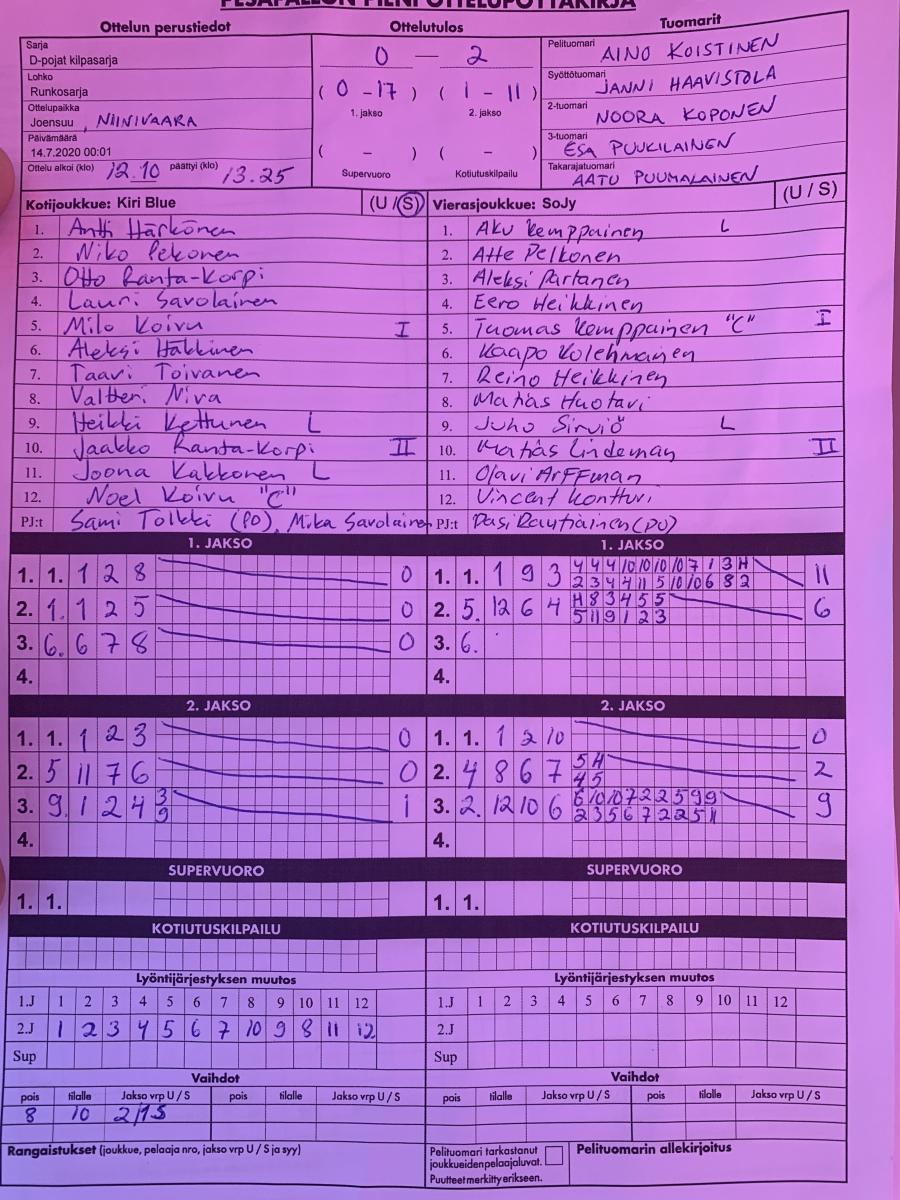 PESÄPALLON PIENI OTTELUPÖYTÄKIRJA
Ottelun perustiedot
Ottelutulos
Tuomarit
Sarja
D-pojat kilpasarja
Lohko
Runkosarja
Ottelupaikka
Joensuu , NIINIVAARA
Päivämäärä
14.7.2020 00:01
Ottelu alkoi (klo) 12.10 päättyi (klo) 13.25
0 — 2
( 0 - 17 ) ( 1 - 11 )
1. jakso 2. jakso
( - ) ( - )
Supervuoro Kotiutuskilpailu
Pelituomari AINO KOISTINEN
Syöttötuomari JANNI HAAVISTOLA
2-tuomari NOORA KOPONEN
3-tuomari ESA PUUKILAINEN
Takarajatuomari AATU PUUMALAINEN
Kotijoukkue: Kiri Blue (U / S)
1. Antti Härkönen
2. Niko Pekonen
3. Otto Ranta-Korpi
4. Lauri Savolainen
5. Milo Koivu I
6. Aleksi Häkkinen
7. Taavi Toivanen
8. Valtteri Niva
9. Heikki Kettunen L
10. Jaakko Ranta-Korpi II
11. Joona Kakkonen L
12. Noel Koivu "C"
PJ:t Sami Tolkki (PO), Mika Savolainen
Vierasjoukkue: SoJy (U / S)
1. Aku Kemppainen L
2. Atte Pelkonen
3. Aleksi Partanen
4. Eero Heikkinen
5. Tuomas Kemppainen "C" I
6. Kaapo Kolehmainen
7. Reino Heikkinen
8. Matias Huotari
9. Juho Sirviö L
10. Matias Lindeman II
11. Olavi Arffman
12. Vincent Kontturi
PJ:t Pasi Rautiainen (PO)
1. JAKSO
1. 1. 1 2 8 0
2. 1. 1 2 5 0
3. 6. 6 7 8 0
4.
1. JAKSO
4 4 4 10 10 10 10 7 1 3 H
1. 1. 1 9 3 11
2 3 4 4 11 5 10 10 6 8 2
H 8 3 4 5 5
2. 5. 12 6 4 6
5 11 9 1 2 3
3. 6.
4.
2. JAKSO
1. 1. 1 2 3 0
2. 5 11 7 6 0
3. 9. 1 2 4 3 1
9
4.
2. JAKSO
1. 1. 1 2 10 0
5 H
2. 4 8 6 7 2
4 5
6 10 10 7 2 2 5 9 9
3. 2. 12 10 6 9
2 3 5 6 7 2 2 5 11
4.
SUPERVUORO
1. 1.
SUPERVUORO
1. 1.
KOTIUTUSKILPAILU
KOTIUTUSKILPAILU
Lyöntijärjestyksen muutos
1.J 1 2 3 4 5 6 7 8 9 10 11 12
2.J 1 2 3 4 5 6 7 10 9 8 11 12
Sup
Lyöntijärjestyksen muutos
1.J 1 2 3 4 5 6 7 8 9 10 11 12
2.J
Sup
Vaihdot
pois tilalle Jakso vrp U / S pois tilalle Jakso vrp U / S
8 10 2/1S
Vaihdot
pois tilalle Jakso vrp U / S pois tilalle Jakso vrp U / S
Rangaistukset (joukkue, pelaaja nro, jakso vrp U / S ja syy)
Pelituomari tarkastanut
joukkueiden pelaajaluvat.
Puutteet merkitty erikseen.
Pelituomarin allekirjoitus